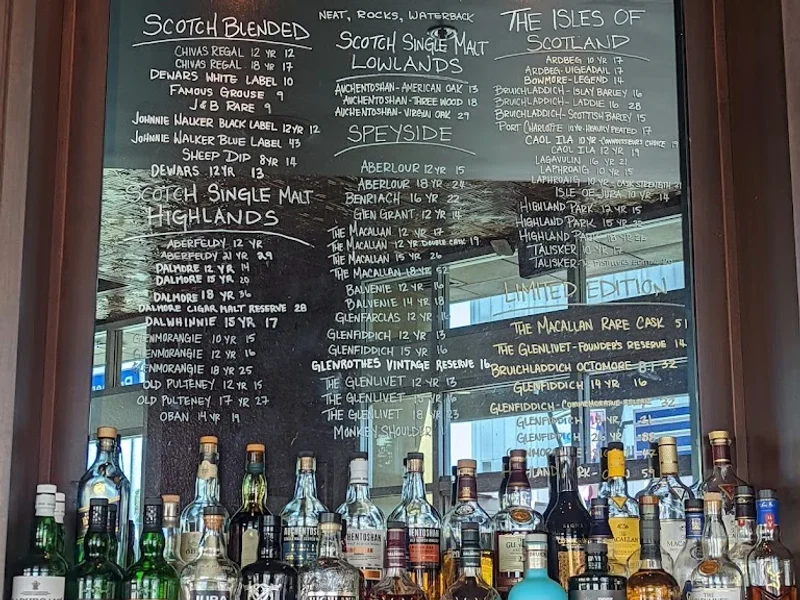 SCOTCH BLENDED
CHIVAS REGAL 12 YR 12
CHIVAS REGAL 18 YR 17
DEWARS WHITE LABEL 10
FAMOUS GROUSE 9
J&B RARE 9
JOHNNIE WALKER BLACK LABEL 12YR 12
JOHNNIE WALKER BLUE LABEL 43
SHEEP DIP 8YR 14
DEWARS 12YR 13
SCOTCH SINGLE MALT
HIGHLANDS
ABERFELDY 12 YR
ABERFELDY 21 YR 29
DALMORE 12 YR 14
DALMORE 15 YR 20
DALMORE 18 YR 36
DALMORE CIGAR MALT RESERVE 28
DALWHINNIE 15 YR 17
GLENMORANGIE 10 YR 15
GLENMORANGIE 12 YR 16
GLENMORANGIE 18 YR 25
OLD PULTENEY 12 YR 15
OLD PULTENEY 17 YR 27
OBAN 14 YR 19
NEAT, ROCKS, WATERBACK
SCOTCH SINGLE MALT
LOWLANDS
AUCHENTOSHAN-AMERICAN OAK 13
AUCHENTOSHAN-THREE WOOD 18
AUCHENTOSHAN-VIRGIN OAK 29
SPEYSIDE
ABERLOUR 12 YR 15
ABERLOUR 18 YR 24
BENRIACH 16 YR 22
GLEN GRANT 12 YR 14
THE MACALLAN 12 YR 17
THE MACALLAN 12 YR DOUBLE CASK 19
THE MACALLAN 15 YR 26
THE MACALLAN 18 YR 52
BALVENIE 12 YR 16
BALVENIE 14 YR 18
GLENFARCLAS 12 YR
GLENFIDDICH 12 YR 13
GLENFIDDICH 15 YR 16
GLENROTHES VINTAGE RESERVE 16
THE GLENLIVET 12 YR 13
THE GLENLIVET 15 YR 16
THE GLENLIVET 18 YR 23
MONKEY SHOULDER
THE ISLES OF
SCOTLAND
ARDBEG 10 YR 17
ARDBEG-UIGEADAIL 17
BOWMORE-LEGEND 14
BRUICHLADDICH-ISLAY BARLEY 16
BRUICHLADDICH-LADDIE 16 28
BRUICHLADDICH-SCOTTISH BARLEY 15
PORT CHARLOTTE 10YR-HEAVILY PEATED 17
CAOL ILA 10YR-CONNOISSEURS CHOICE 19
CAOL ILA 12 YR 19
LAGAVULIN 16 YR 21
LAPHROAIG 10 YR 15
LAPHROAIG 10 YR-CASK STRENGTH 21
ISLE OF JURA 10 YR 14
HIGHLAND PARK 12 YR 15
HIGHLAND PARK 15 YR
HIGHLAND PARK 18 YR 26
TALISKER 10 YR 17
TALISKER-
LIMITED EDITION
THE MACALLAN RARE CASK 51
THE GLENLIVET-FOUNDER'S RESERVE 14
BRUICHLADDICH OCTOMORE 8.1 32
GLENFIDDICH 14 YR 16
GLENFIDDICH- 22
GLENFIDDICH 21
GLENFIDDICH 26 YR 88
PARK 59
AUCHENTOSHAN
AUCHENTOSHAN
AUCHENTOSHAN
MACALLAN
JURA